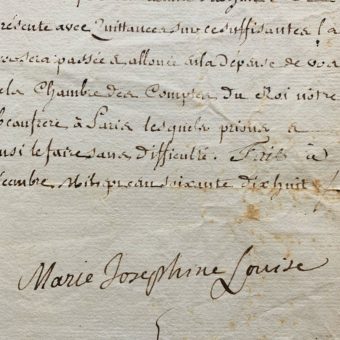 résente avec Quittances sur ce suffisantes la
sera passée & allouée à la Depense de vos
la Chambre des Comptes du Roi notre
beaufrere à Paris lesquels prions &
nsi le faire sans difficulté. Fait à
écembre Mil sept cent soixante dixhuit
Marie Josephine Louise